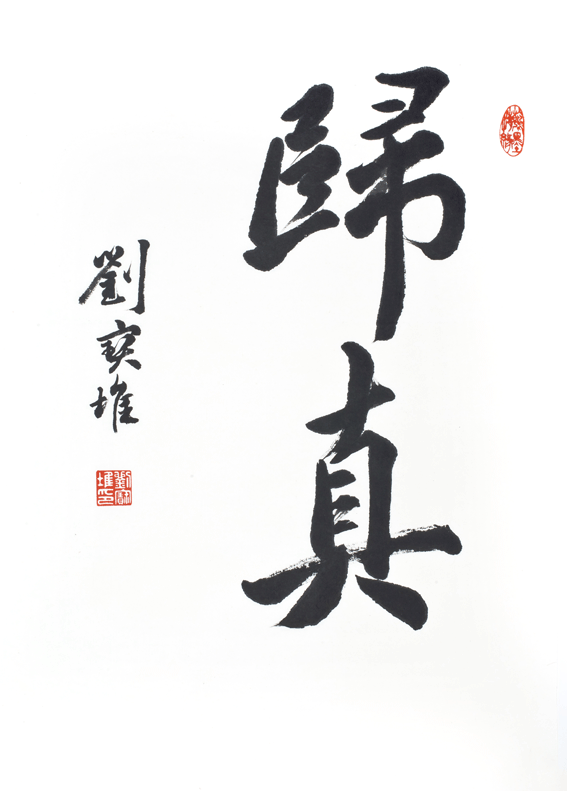 歸真
劉寶堆